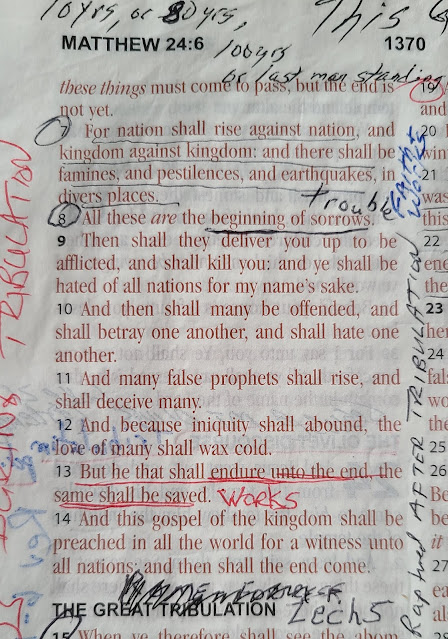 10 yrs, or 80 yrs, This
MATTHEW 24:6 100 yrs 1370
or last man standing
these things must come to pass, but the end is
not yet.
7 For nation shall rise against nation, and
kingdom against kingdom: and there shall be
famines, and pestilences, and earthquakes, in
divers places. trouble
8 All these are the beginning of sorrows.
9 Then shall they deliver you up to be
afflicted, and shall kill you: and ye shall be
hated of all nations for my name's sake.
10 And then shall many be offended, and
shall betray one another, and shall hate one
another.
11 And many false prophets shall rise, and
shall deceive many.
12 And because iniquity shall abound, the
love of many shall wax cold.
13 But he that shall endure unto the end, the
same shall be saved. WORKS
14 And this gospel of the kingdom shall be
preached in all the world for a witness unto
all nations; and then shall the end come.
THE GREAT TRIBULATION Zech 5
15 When ye therefore shall see the abom
DURING TRIBULATION
FAITH
WORKS
Raptured AFTER TRIBULATION
19
and
20
21
was
this
22
the
23
24
25
26
27